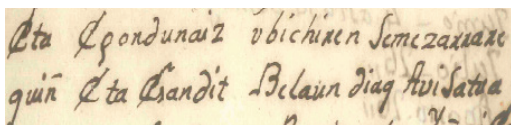 Eta Egondunaiz vbichiren Semezarrare
quin̄ Eta Esandit Belaun diag Avisatua